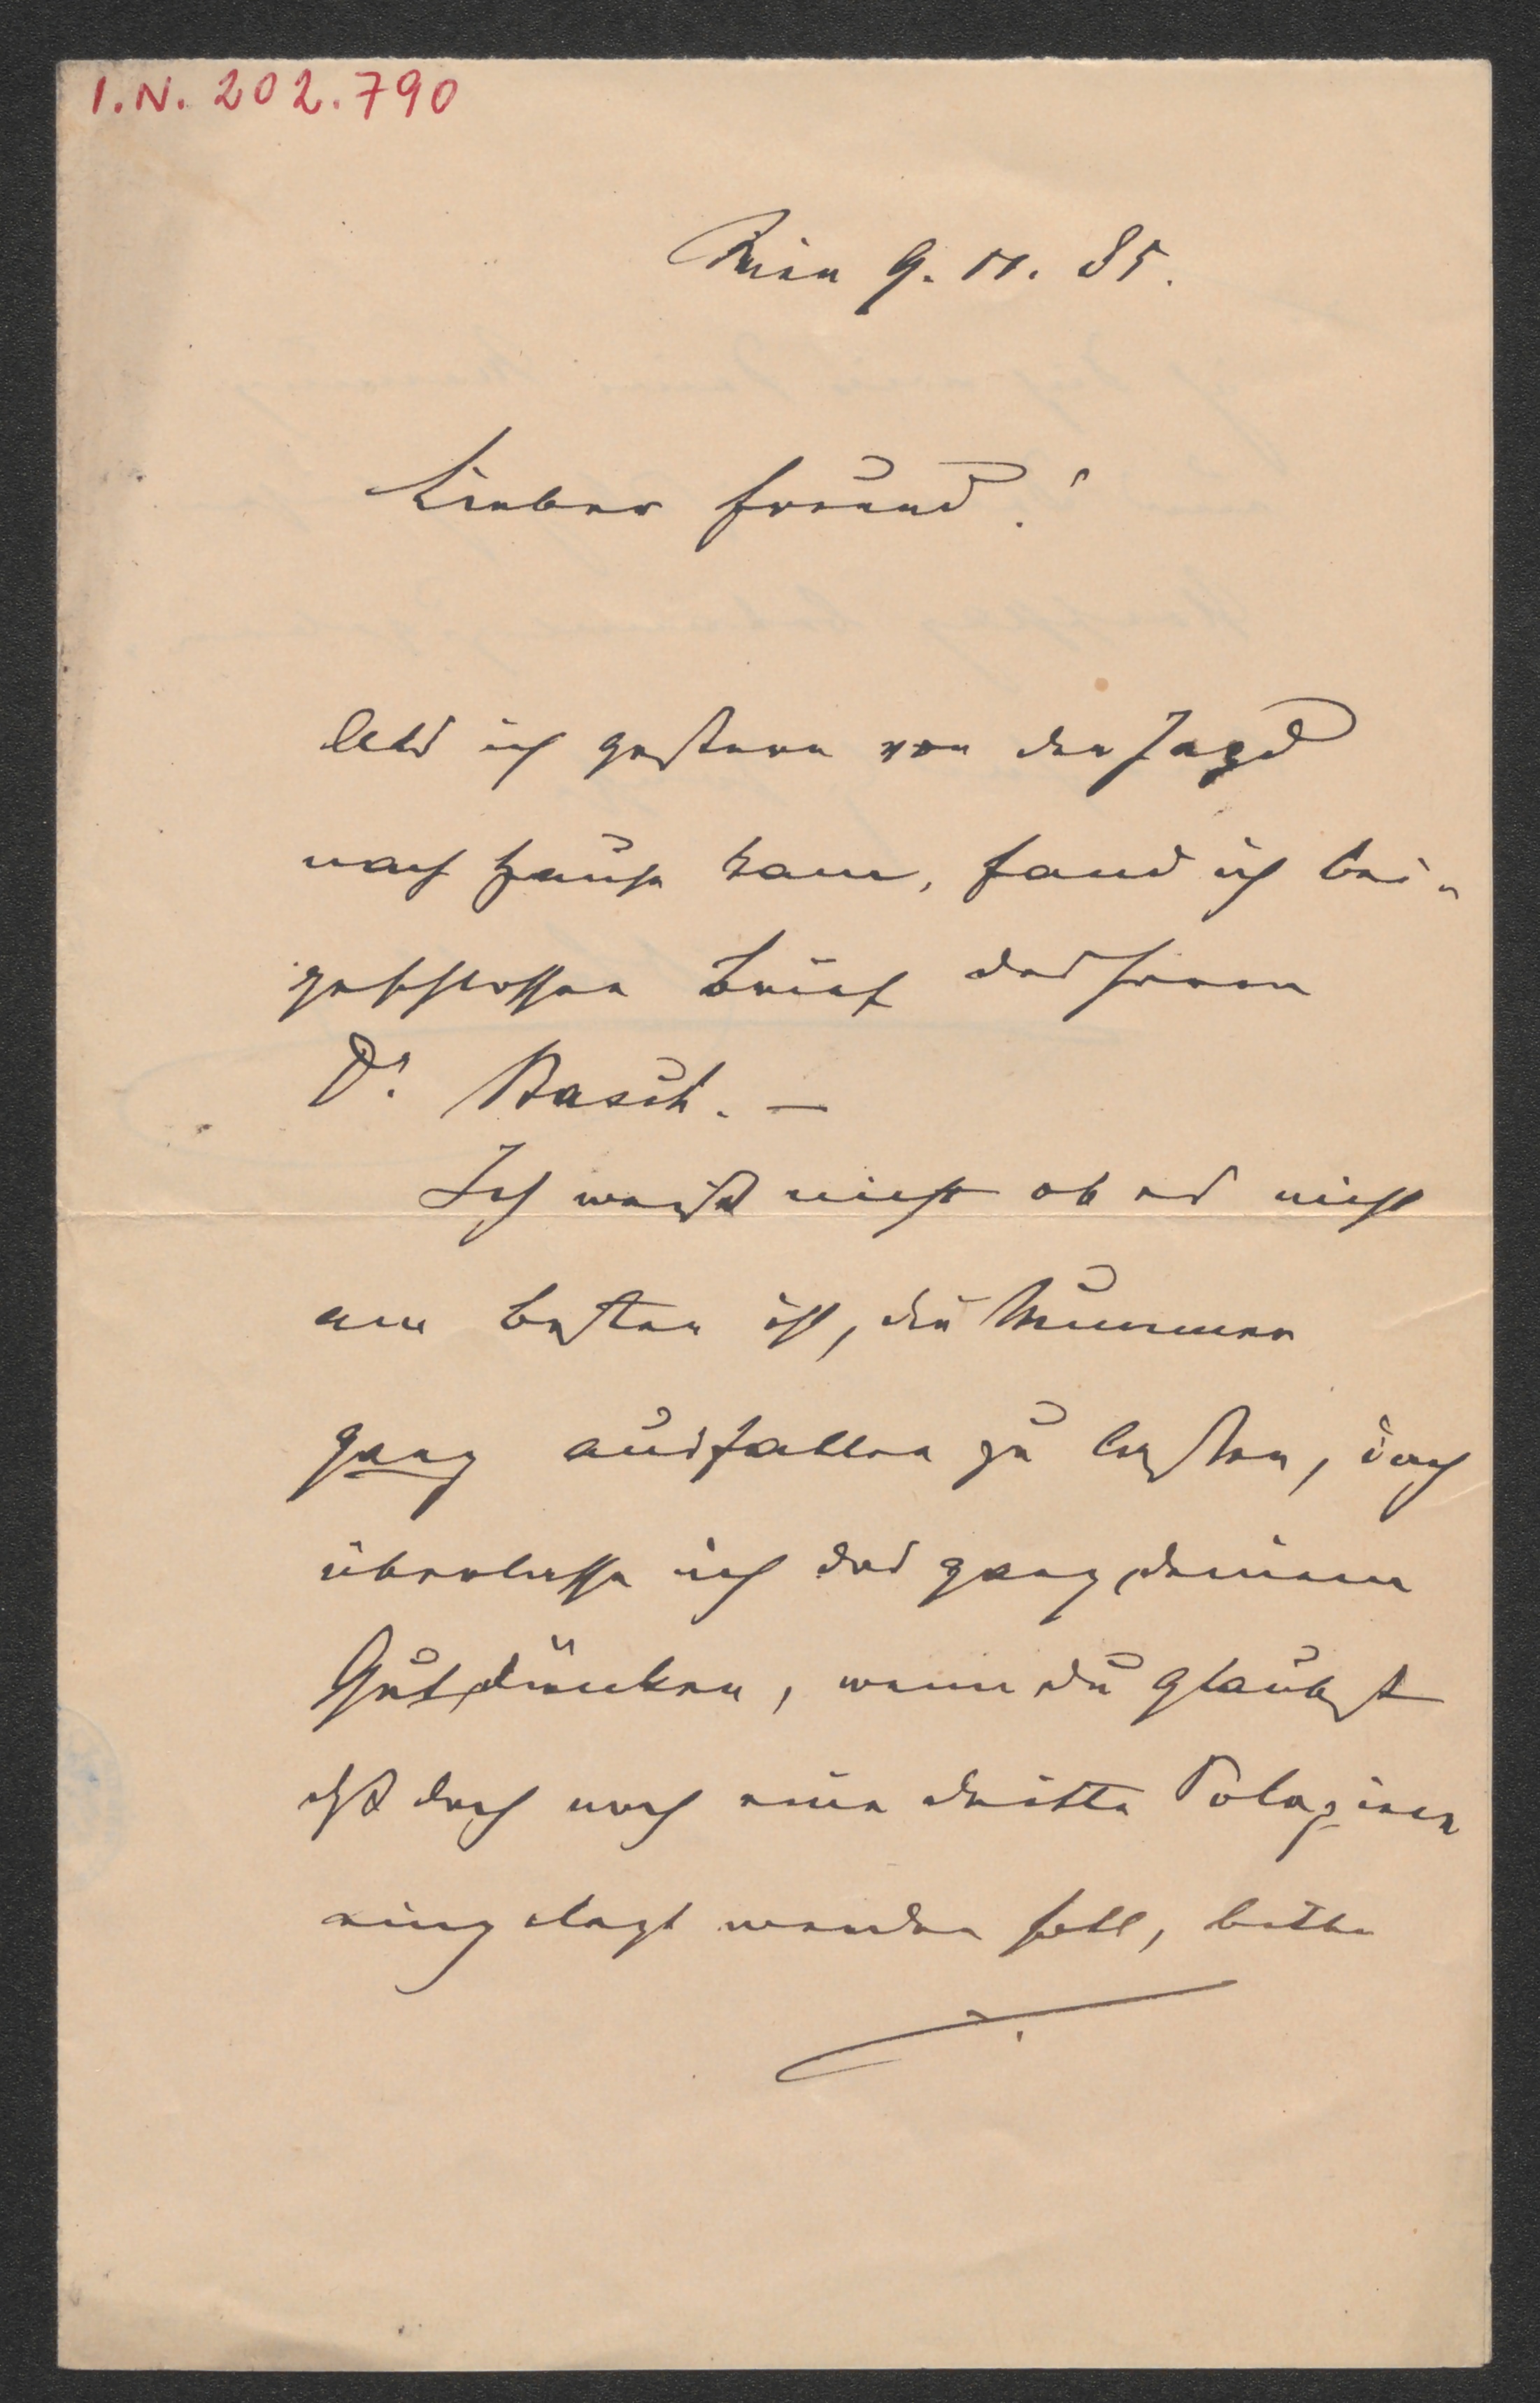 I.N. 202.790
Wien 9. 11. 85.
Lieber Freund!
Als ich gestern von der Jagd
nach Hause kam, fand ich bei-
geschlossen Brief des Herrn
Dr. Basch. –
Ich weiß nicht ob es nicht
am besten ist, die Nummer
ganz ausfallen zu lassen, doch
überlasse ich das ganz deinem
Gutdünken, wenn du glaubst
daß doch noch eine dritte
eingelegt werden soll, bitte